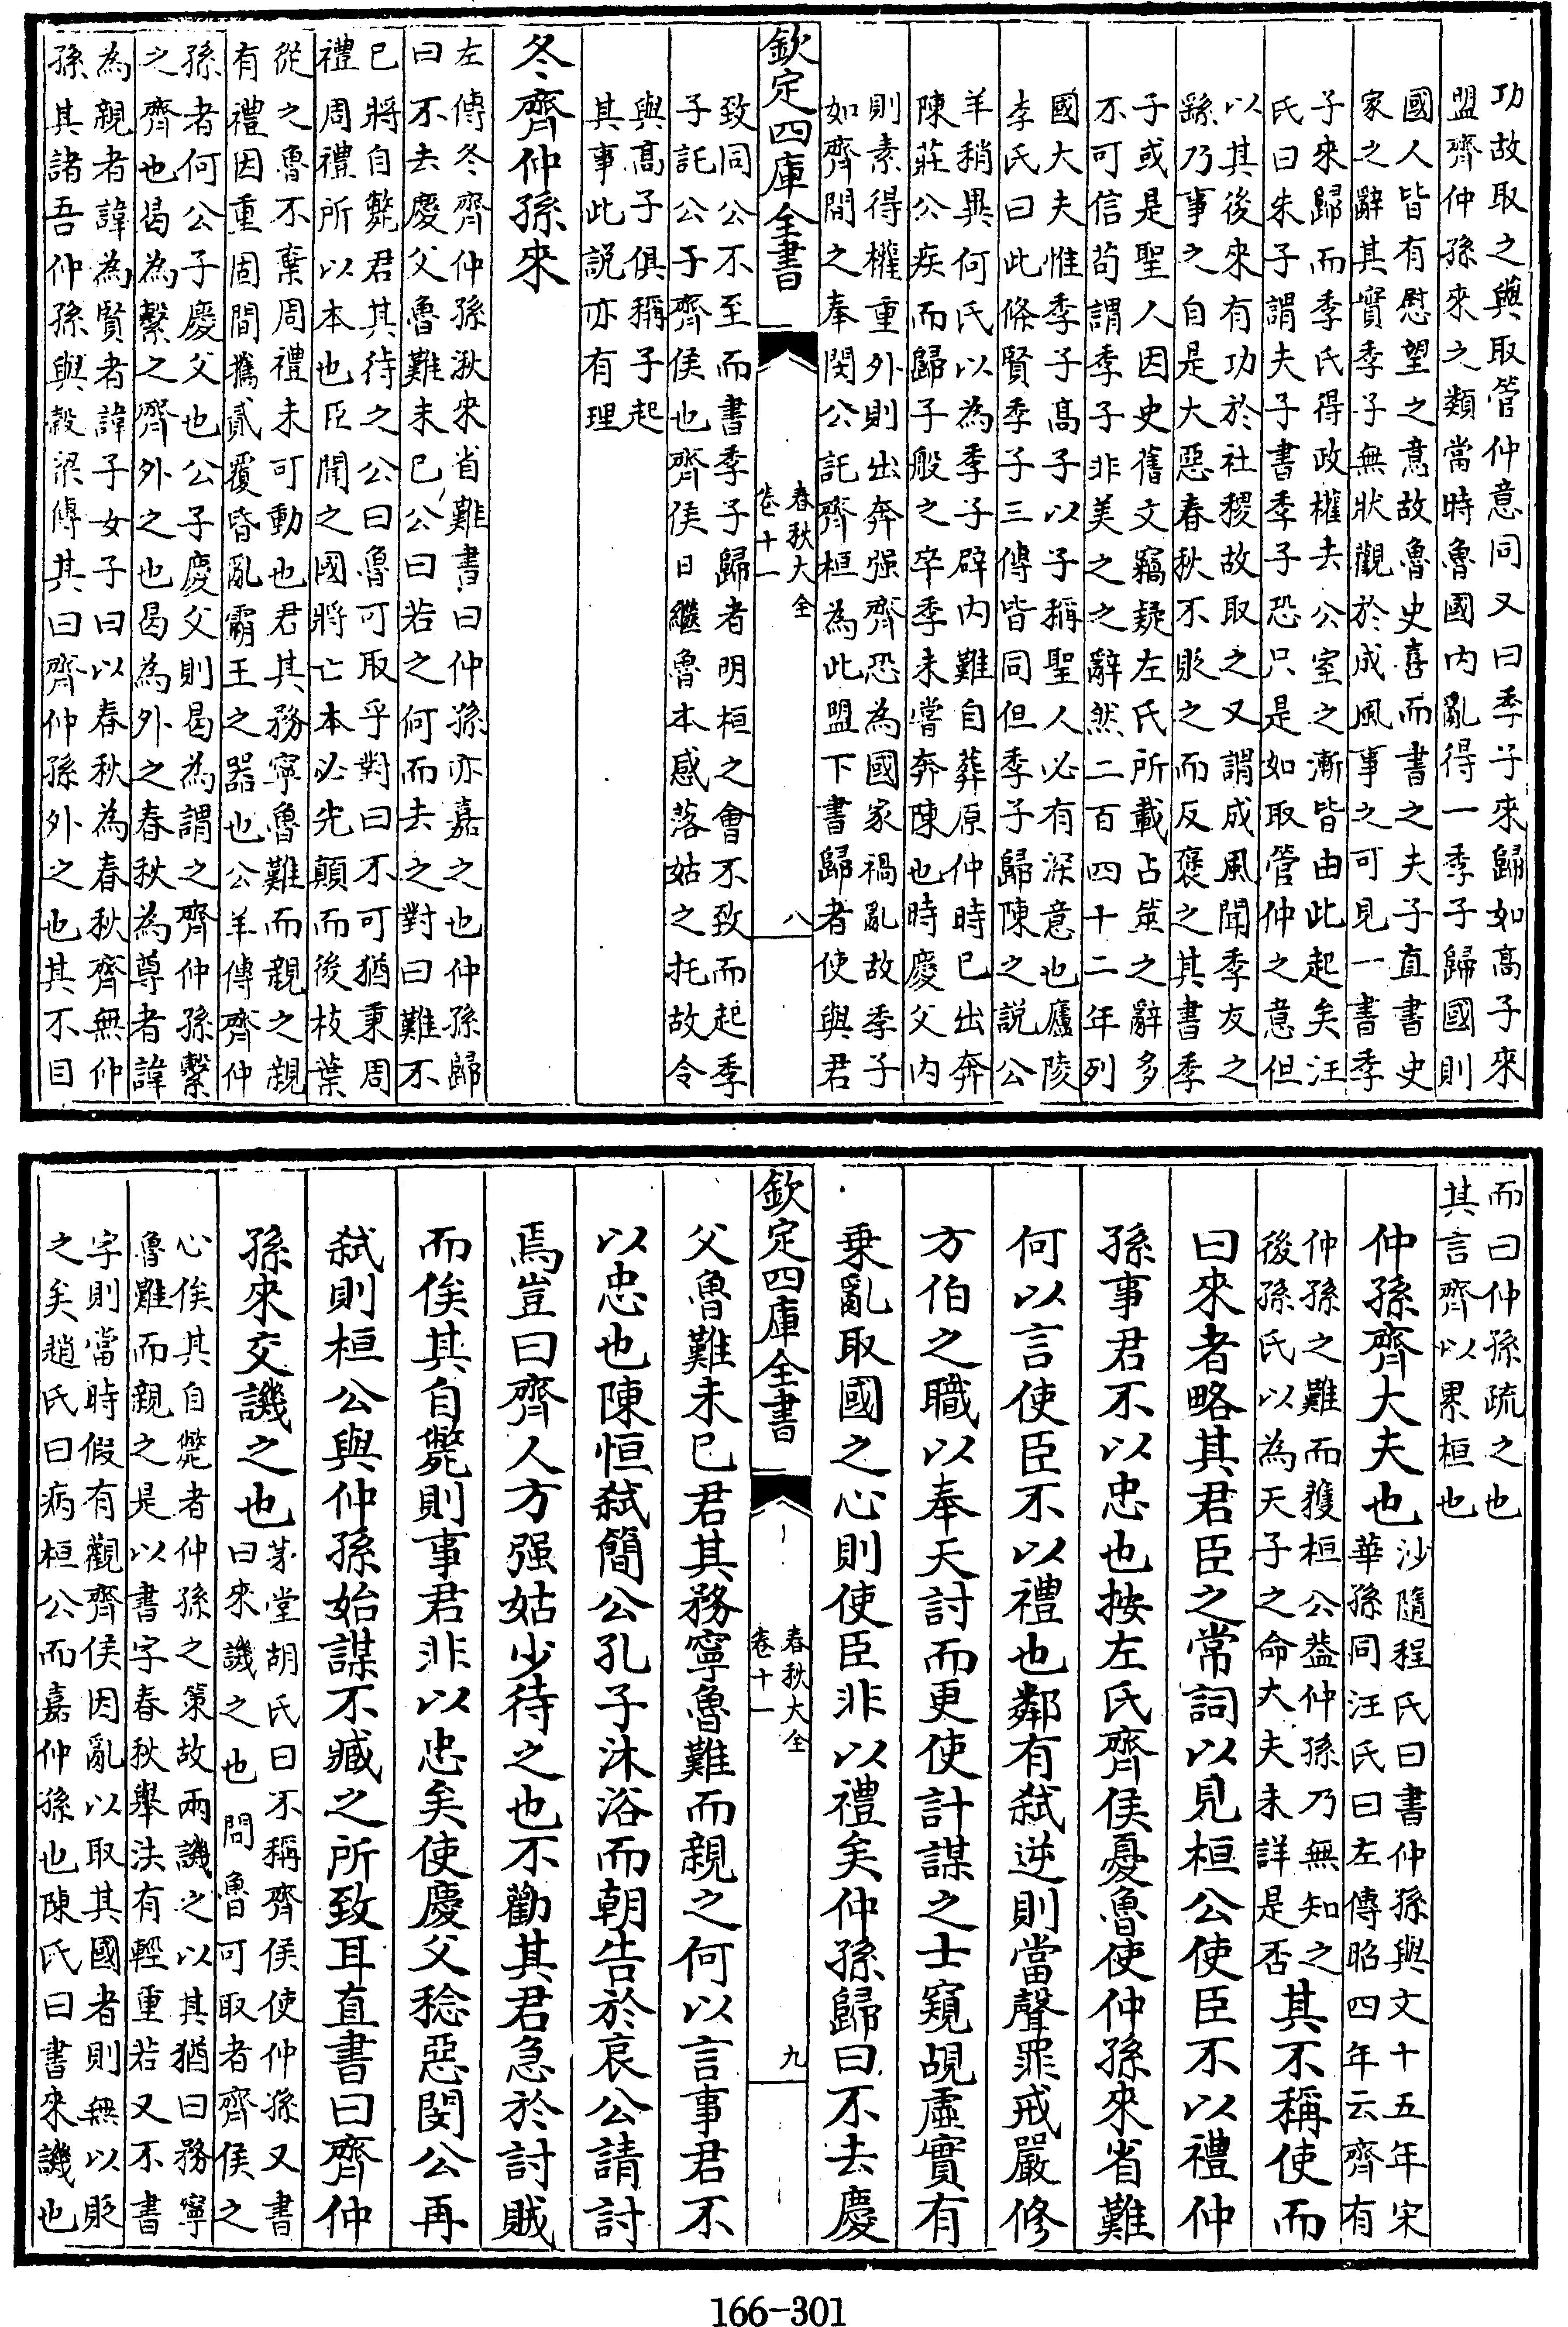 功故取之與取管仲意同又曰季子來歸如高子來
盟齊仲孫來之類當時魯國内亂得一季子歸國則
國人皆有慰望之意故魯史喜而書之夫子直書史
家之辭其實季子無狀觀於成風事之可見一書季
子來歸而季氏得政權去公室之漸皆由此起矣汪
氏曰朱子謂夫子書季子恐只是如取管仲之意但
以其後來有功於社稷故取之又謂成風聞季友之
繇乃事之自是大惡春秋不貶之而反褒之其書季
子或是聖人因史舊文竊疑左氏所載占筮之辭多
不可信茍謂季子非美之之辭然二百四十二年列
國大夫惟季子髙子以子稱聖人必有深意也廬陵
李氏曰此條賢季子三傳皆同但季子歸陳之說公
羊稍異何氏以為季子辟内難自葬原仲時已出奔
陳莊公疾而歸子般之卒季未嘗奔陳也時慶父内
則素得權重外則出奔强齊恐為國家禍亂故季子
如齊間之奉閔公託齊桓為此盟下書歸者使與君
欽定四庫全書
春秋大全
卷十一
八
致同公不至而書季子歸者明桓之會不致而起季
子託公于齊侯也齊侯日繼魯本感落姑之托故令
與髙子俱稱子起
其事此説亦有理
冬齊仲孫來
左傳冬齊仲孫湫來省難書曰仲孫亦嘉之也仲孫歸
曰不去慶父魯難未已公曰若之何而去之對曰難不
已將自斃君其待之公曰魯可取乎對曰不可猶秉周
禮周禮所以本也臣聞之國將亡本必先顛而後枝葉
從之魯不棄周禮未可動也君其務寧魯難而親之親
有禮因重固間攜貳覆昏亂霸王之器也公羊傳齊仲
孫者何公子慶父也公子慶父則曷為謂之齊仲孫繫
之齊也曷為繫之齊外之也曷為外之春秋為尊者諱
為親者諱為賢者諱子女子曰以春秋為春秋齊無仲
孫其諸吾仲孫與穀梁傳其曰齊仲孫外之也其不目
而曰仲孫疏之也
其言齊以累桓也
仲孫齊大夫也
沙隨程氏曰書仲孫與文十五年宋
華孫同汪氏曰左傳昭四年云齊有
仲孫之難而獲桓公蓋仲孫乃無知之
後孫氏以為天子之命大夫未詳是否
其不稱使而
曰來者略其君臣之常詞以見桓公使臣不以禮仲
孫事君不以忠也按左氏齊侯憂魯使仲孫來省難
何以言使臣不以禮也鄰有弑逆則當聲罪戒嚴修
方伯之職以奉天討而更使計謀之士窺覘虚實有
乗亂取國之心則使臣非以禮矣仲孫歸曰不去慶
欽定四庫全書
春秋大全
卷十一
九
父魯難未已君其務寧魯難而親之何以言事君不
以忠也陳恒弑簡公孔子沐浴而朝告於哀公請討
焉豈曰齊人方强姑少待之也不勸其君急於討賊
而俟其自斃則事君非以忠矣使慶父稔惡閔公再
弑則桓公與仲孫始謀不臧之所致耳直書曰齊仲
孫來交譏之也
茅堂胡氏曰不稱齊侯使仲孫又書
曰來譏之也 問魯可取者齊侯之
心俟其自斃者仲孫之策故兩譏之以其猶曰務寧
魯難而親之是以書字春秋舉法有輕重若又不書
字則當時假有觀齊侯因亂以取其國者則無以貶
之矣趙氏曰病桓公而嘉仲孫也陳氏曰書來譏也
166-301